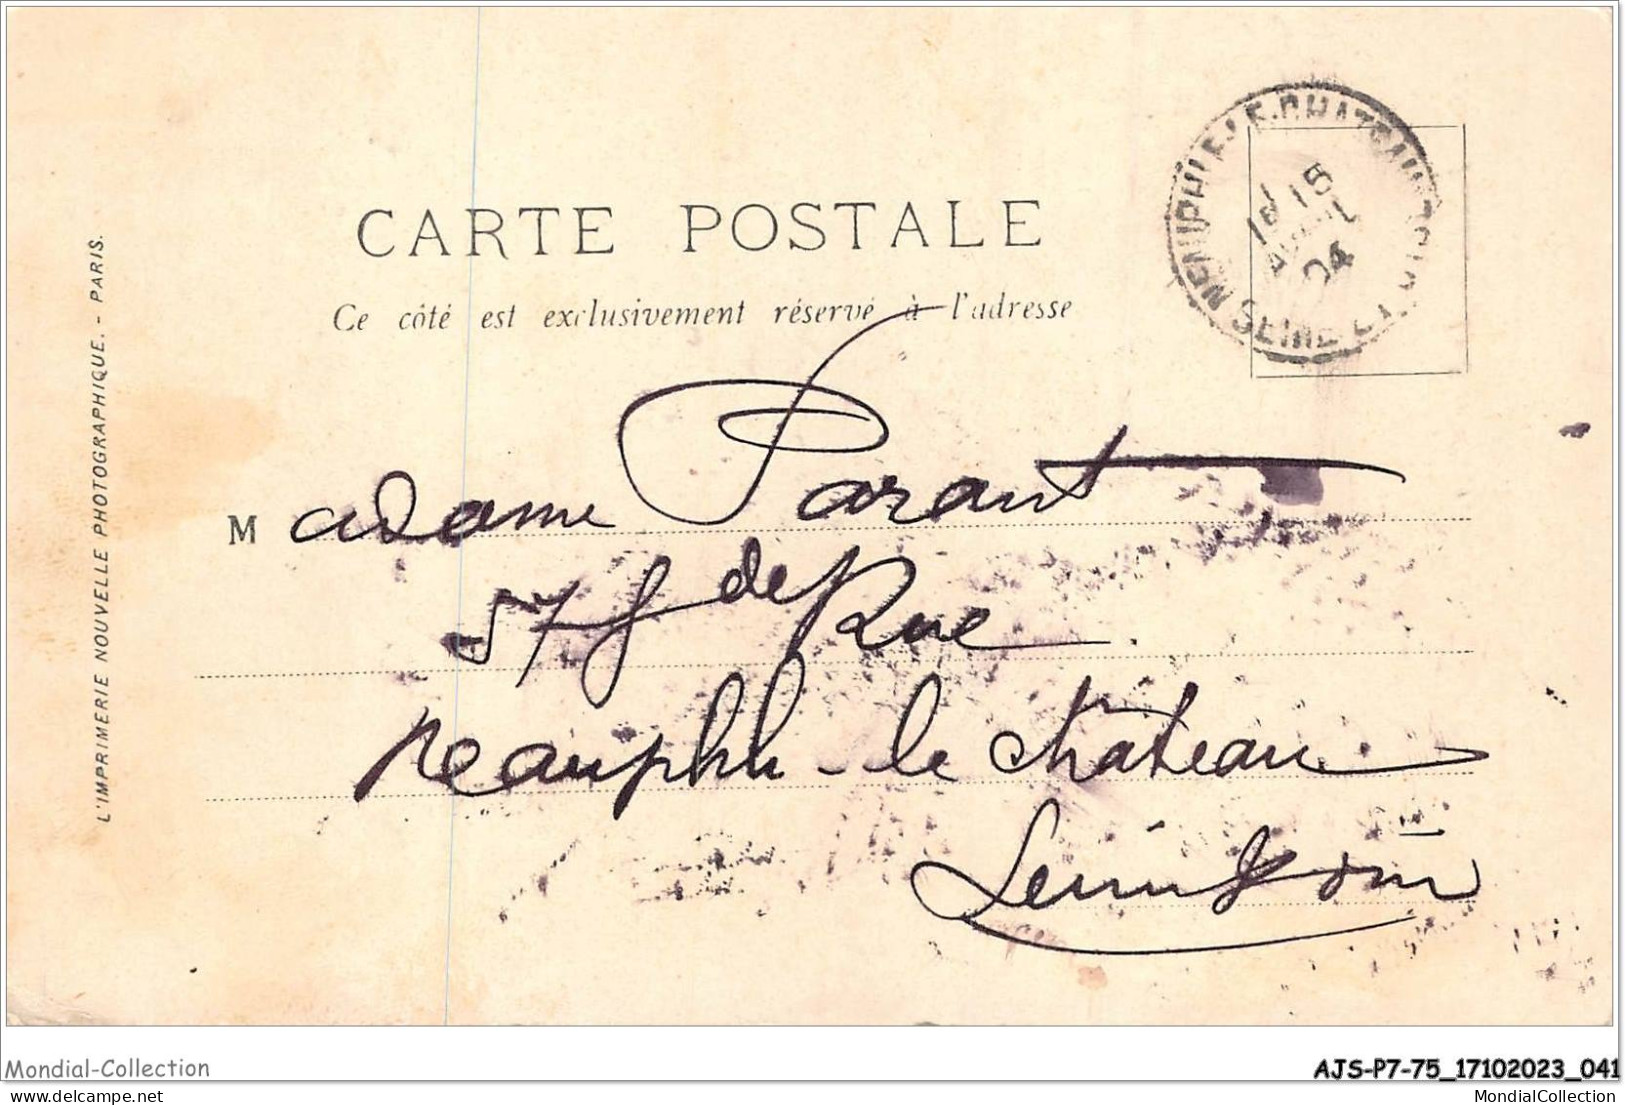 NEAUPHLE-LE-CHATEAU
18 15
AVRIL
04
SEINE ET OISE
CARTE POSTALE
Ce côté est exclusivement réservé à l'adresse
L'IMPRIMERIE NOUVELLE PHOTOGRAPHIQUE. - PARIS.
Madame Parant
57 gde Rue
Neauphle-le château
Seine & Oise
Mondial-Collection
AJS-P7-75_17102023_041
www.delcampe.net
MondialCollection